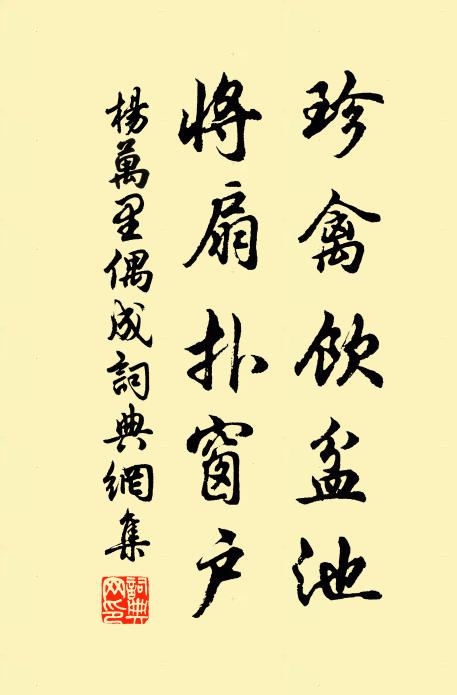 珍禽饮盆池
将扇扑窗户
楊萬里偶成詞典網集
詞典网印